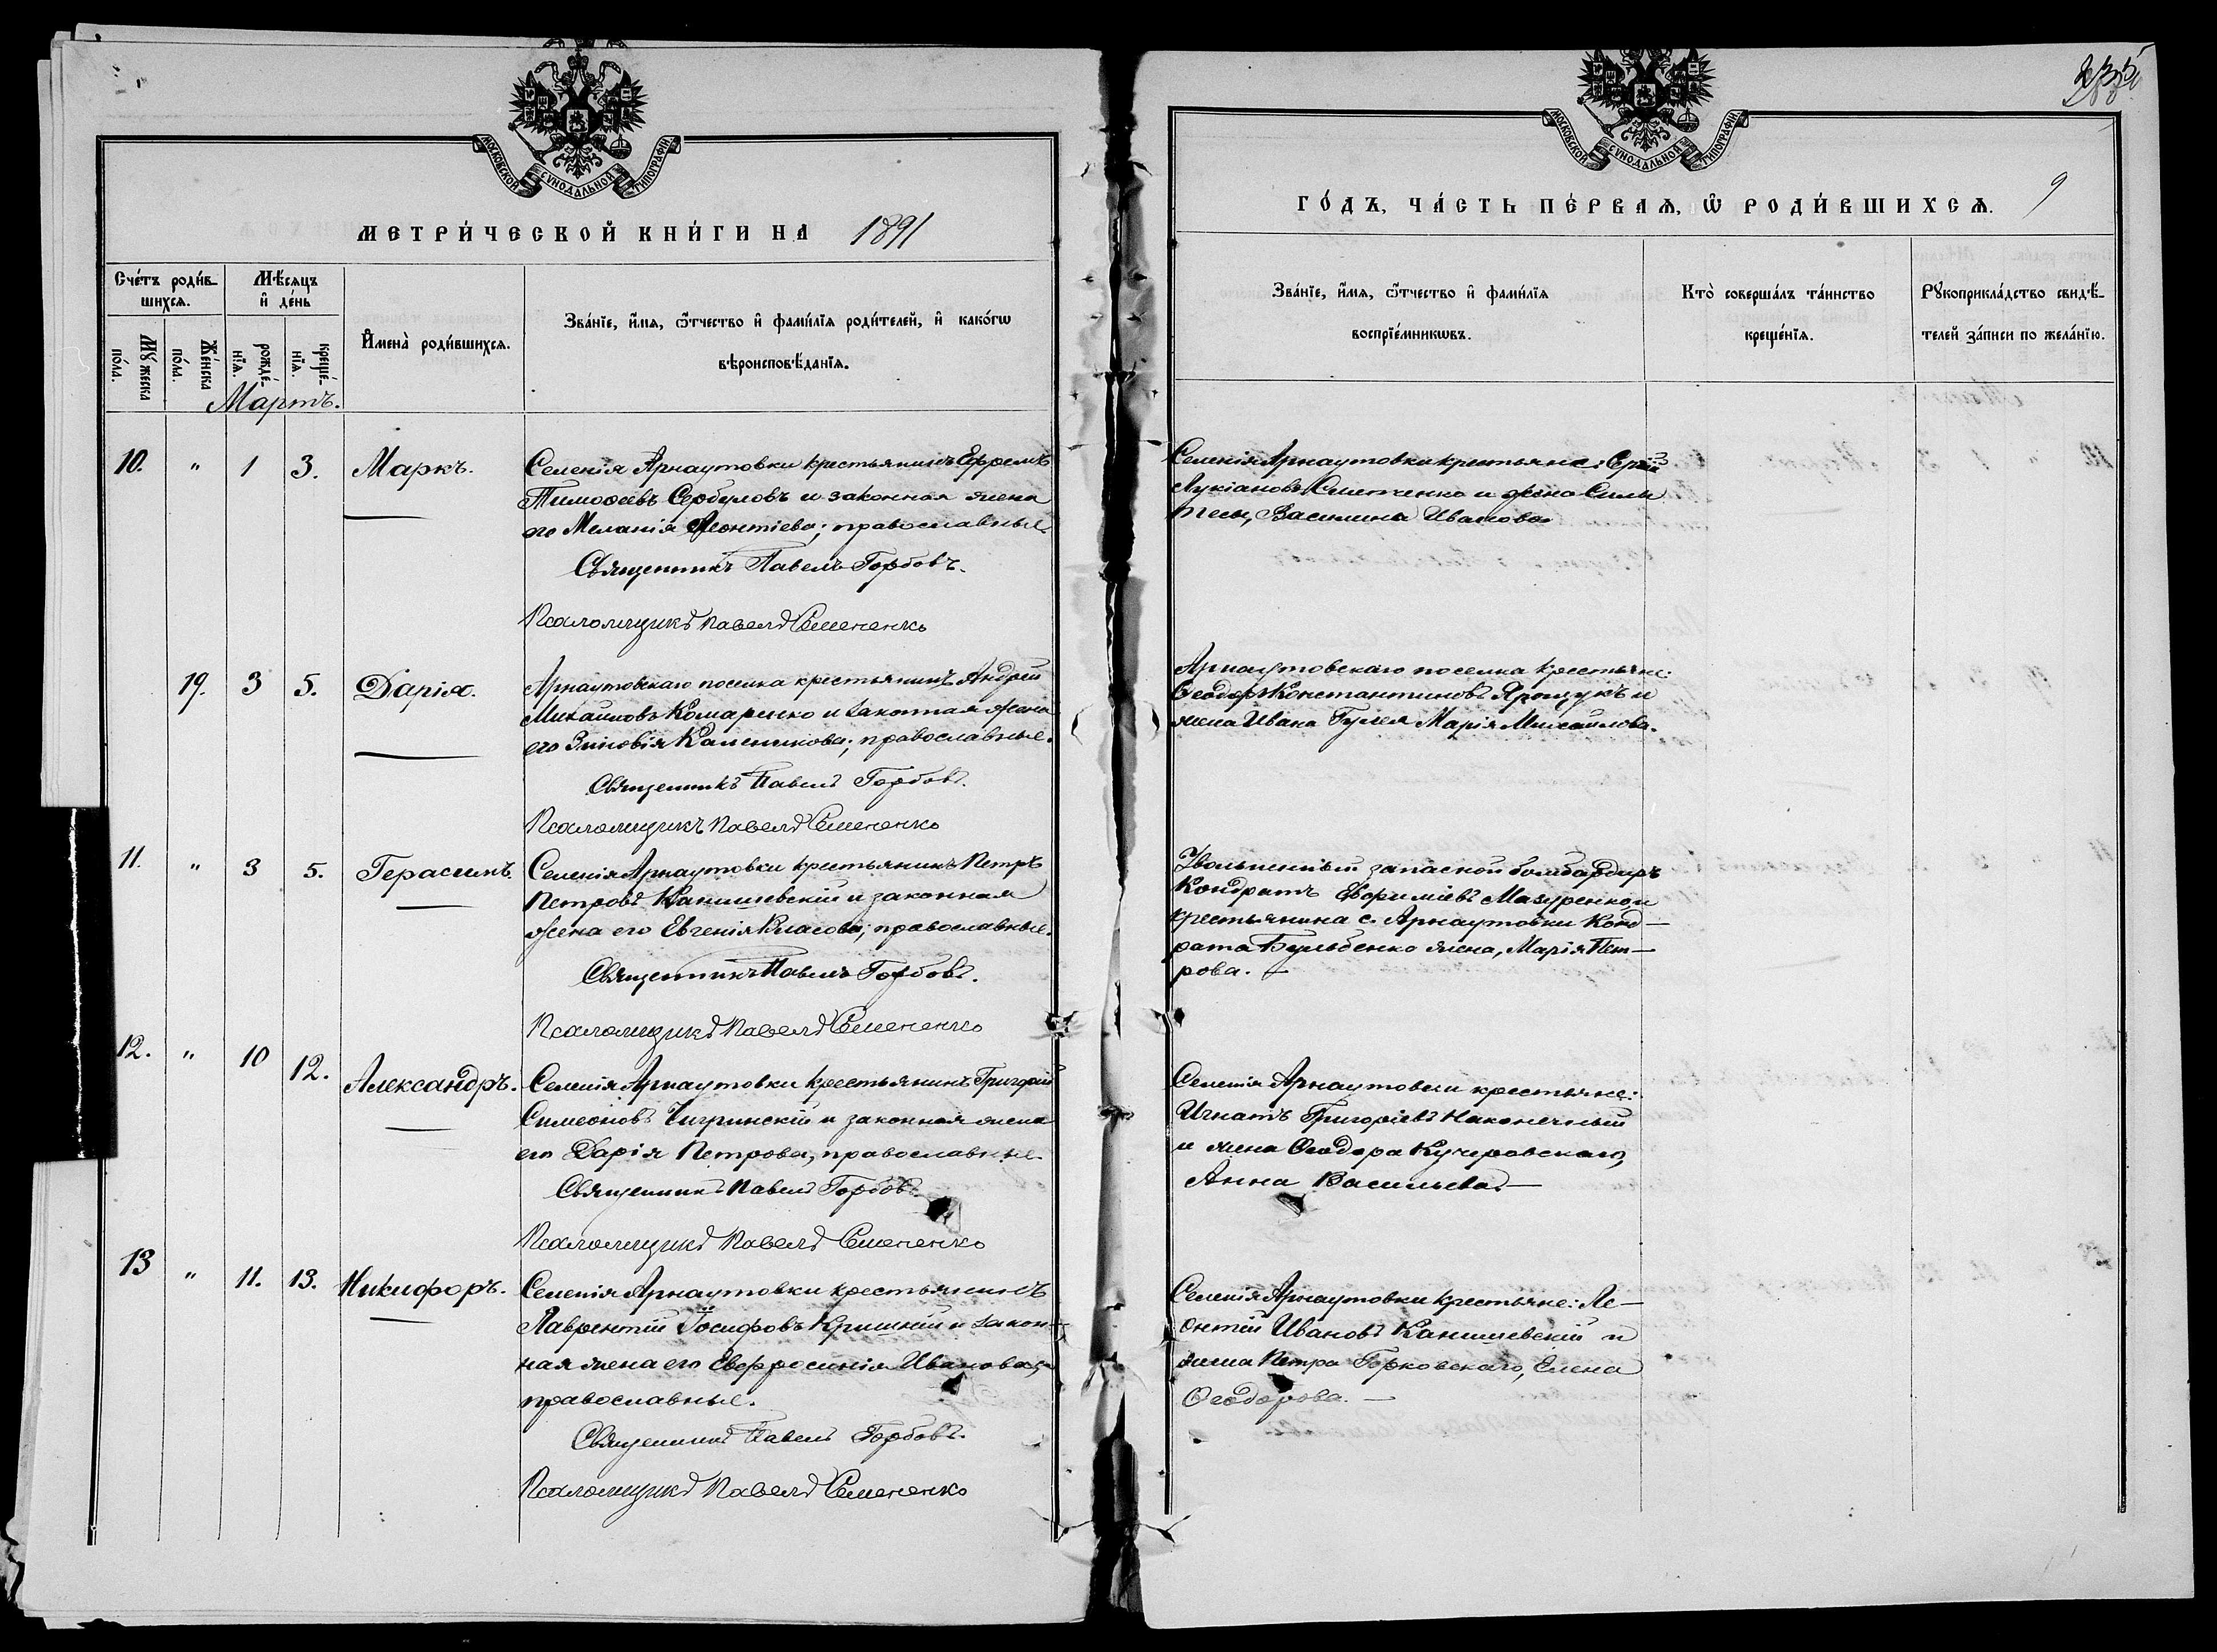 МОСКОВСКОЙ СѴНОДАЛЬНОЙ ТИПОГРАФІИ
МЕТРИ́ЧЕСКОЙ КНИ́ГИ НА 1891
Сче́тъ роди́в-
шихся.
Мѣ́сяцъ
и҆ де́нь
Мꙋ́жеска
по́ла.
Же́нска
по́ла.
рожде́-
нїя.
креще́-
нїя.
И҆мена̀ роди́вшихся.
Зва́нїе, и҆́мя, ѻ҆́тчество и҆ фами́лїя роди́телей, и҆ како́гѡ
вѣроисповѣ́данїя.
Мартъ.
10. " 1 3. Маркъ.
Селенія Арнаутовки крестьянинъ Ефремъ
Тимоѳеевъ Сербуловъ и законная жена
его Меланія Леонтіева; православные
Священникъ Павелъ Горбовъ.
Псаломщикъ Павелъ Семененко
19. 3 5. Дарія.
Арнаутовскаго поселка крестьянинъ Андрей
Михаиловъ Комаренко и законная жена
его Зиновія Каленикова; православные.
Священникъ Павелъ Горбовъ.
Псаломщикъ Павелъ Семененко
11. " 3 5. Герасимъ.
Селенія Арнаутовки крестьянинъ Петръ
Петровъ Канишевскій и законная
жена его Евгенія Власова; православные.
Священникъ Павелъ Горбовъ.
Псаломщикъ Павелъ Семененко
12. " 10 12. Александръ.
Селенія Арнаутовки крестьянинъ Григорій
Симеоновъ Чигринскій и законная жена
его Дарія Петрова, православные.
Священникъ Павелъ Горбовъ
Псаломщикъ Павелъ Семененко
13 " 11. 13. Никифоръ.
Селенія Арнаутовки крестьянинъ
Лаврентій Іосифовъ и закон-
ная жена его Евфросинія Иванова,
православные.
Священникъ Павелъ Горбовъ.
Псаломщикъ Павелъ Семененко
МОСКОВСКОЙ СѴНОДАЛЬНОЙ ТИПОГРАФІИ
ГО́ДЪ, ЧА́СТЬ ПЕ́РВАЯ, Ѡ҆ РОДИ́ВШИХСЯ. 9
Зва́нїе, и҆́мя, ѻ҆́тчество и҆ фами́лїя
воспрїе́мникѡвъ.
Кто̀ соверша́лъ та́инство
креще́нїя.
Рꙋкоприкла́дство свидѣ́-
телей за́писи по жела́нїю.
Селенія Арнаутовки крестьяне: Сергій
Лукіановъ и жена
Василина Иванова
Арнаутовскаго поселка крестьяне:
Ѳеодоръ Константиновъ Ярощукъ и
жена Ивана Гулея Марія Михаилова.
Увольненный запасной бомбардиръ
Кондратъ Евфиміевъ Мазуренко, и
крестьянина с. Арнаутовки Конд-
рата Бульбенко жена, Марія Пет-
рова. -
Селенія Арнаутовки крестьяне:
Игнатъ Григоріевъ Наконечный
и жена Ѳеодора Кучеровскаго,
Анна Васильева. -
Селенія Арнаутовки крестьяне: Ле-
онтій Ивановъ Канишевскій и
жена Петра Горковскаго, Елена
Ѳеодорова. -